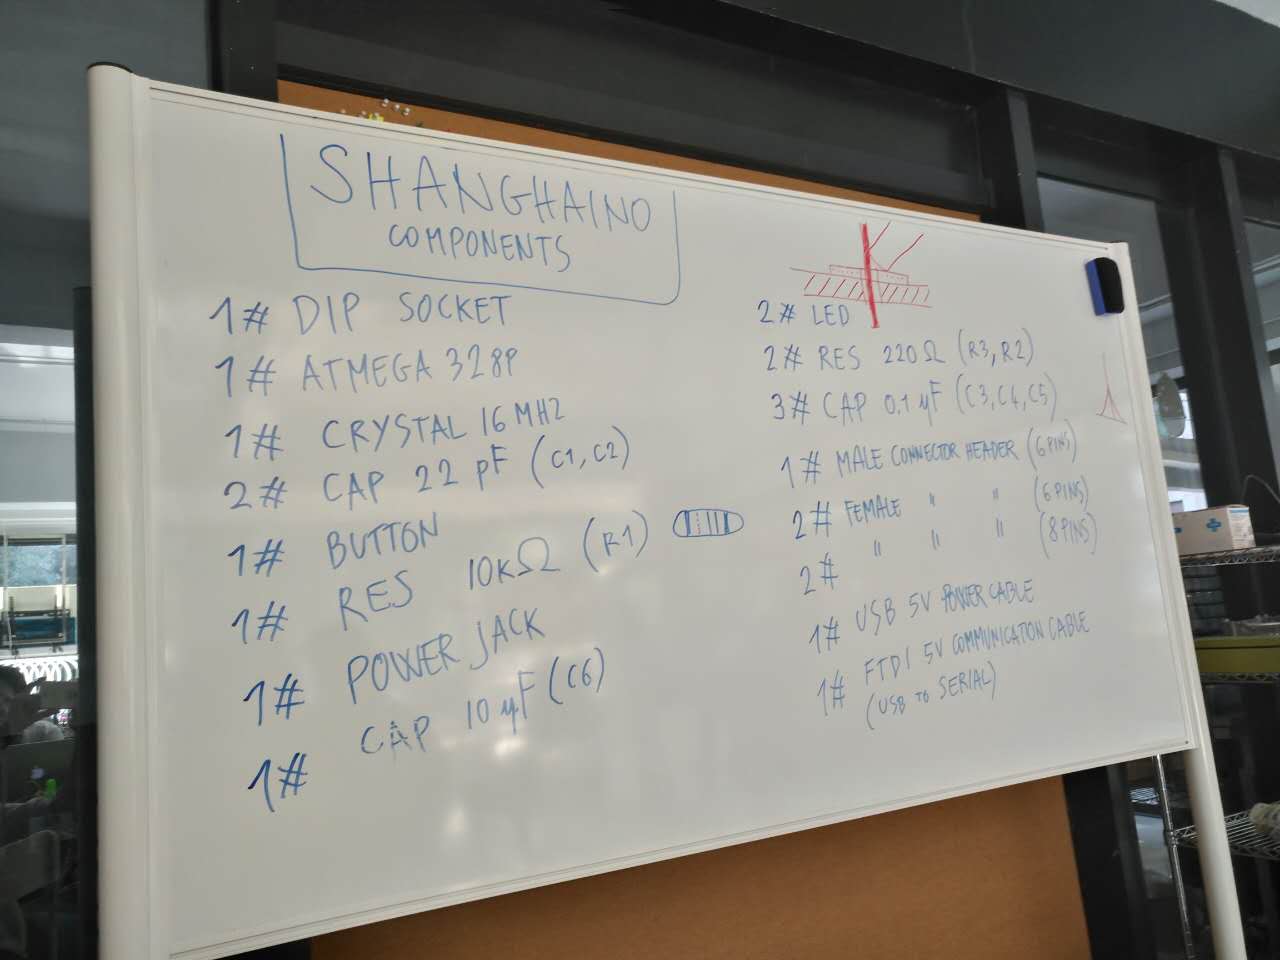 SHANGHAINO
COMPONENTS
1# DIP SOCKET
1# ATMEGA 328P
1# CRYSTAL 16 MHZ
2# CAP 22 pF (C1, C2)
1# BUTTON
1# RES 10KΩ (R1)
1# POWER JACK
1# CAP 10 µF (C6)
2# LED
2# RES 220Ω (R3, R2)
3# CAP 0.1 µF (C3, C4, C5)
1# MALE CONNECTOR HEADER (6 PINS)
2# FEMALE " " (6 PINS)
2# " " " (8 PINS)
1# USB 5V POWER CABLE
1# FTDI 5V COMMUNICATION CABLE
(USB TO SERIAL)